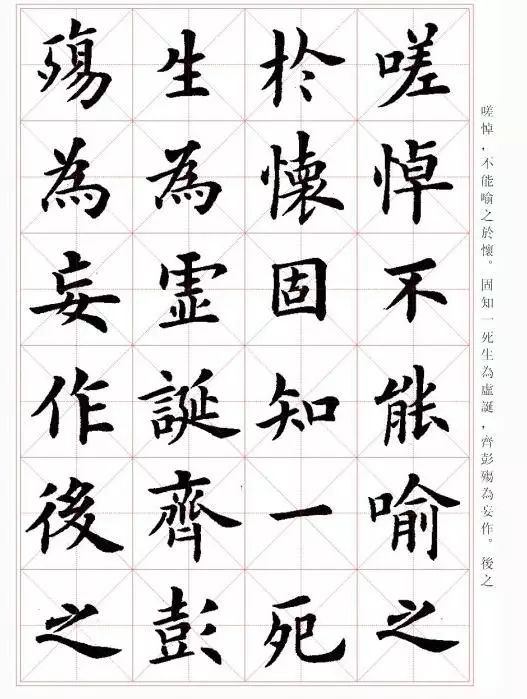 嗟悼不能喻之
於懷固知一死
生為虛誕齊彭
殤為妄作後之
嗟悼，不能喻之於懷。固知一死生為虛誕，齊彭殤為妄作。後之